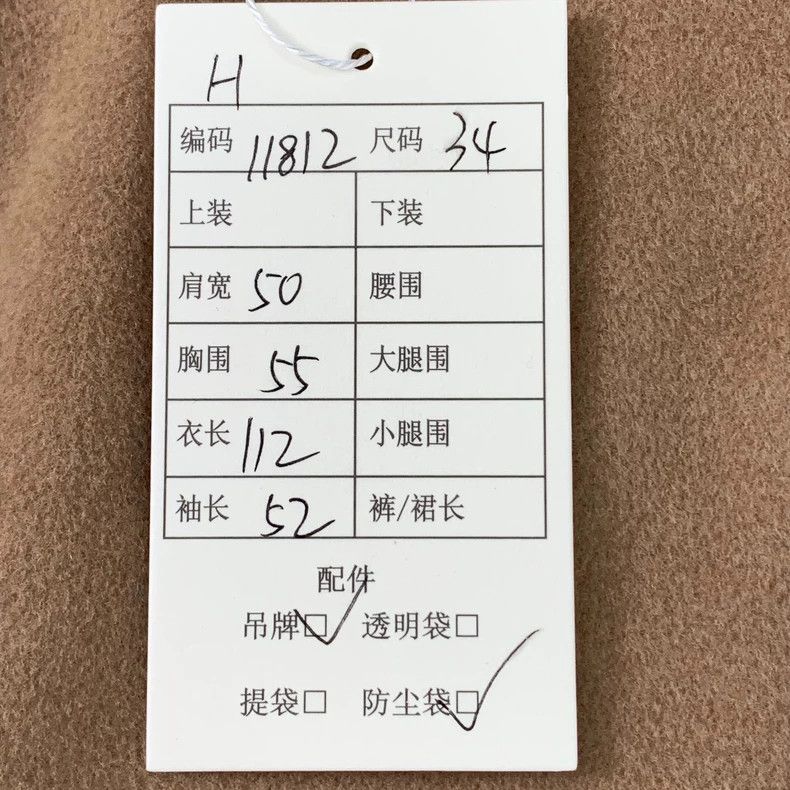 H
编码 11812 尺码 34
上装 下装
肩宽 50 腰围
胸围 55 大腿围
衣长 112 小腿围
袖长 52 裤/裙长
配件
吊牌☑ 透明袋□
提袋□ 防尘袋☑